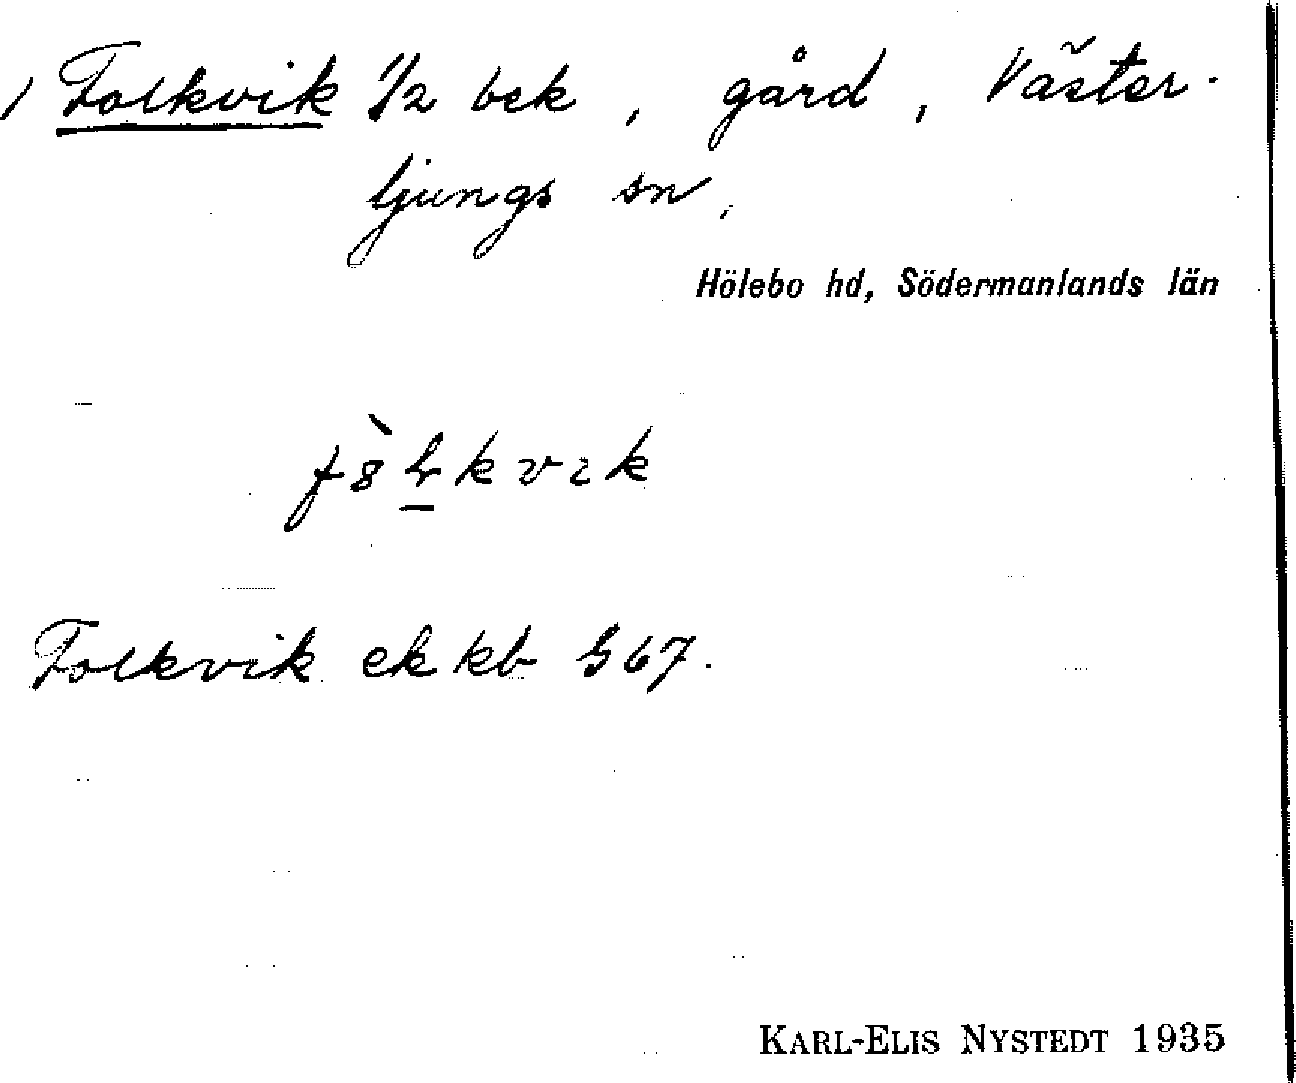 / Folkvik 1/2 bek, gård, Väster-
ljungs sn,
Hölebo hd, Södermanlands län
Folkvik ek kb § 67.
KARL-ELIS NYSTEDT 1935